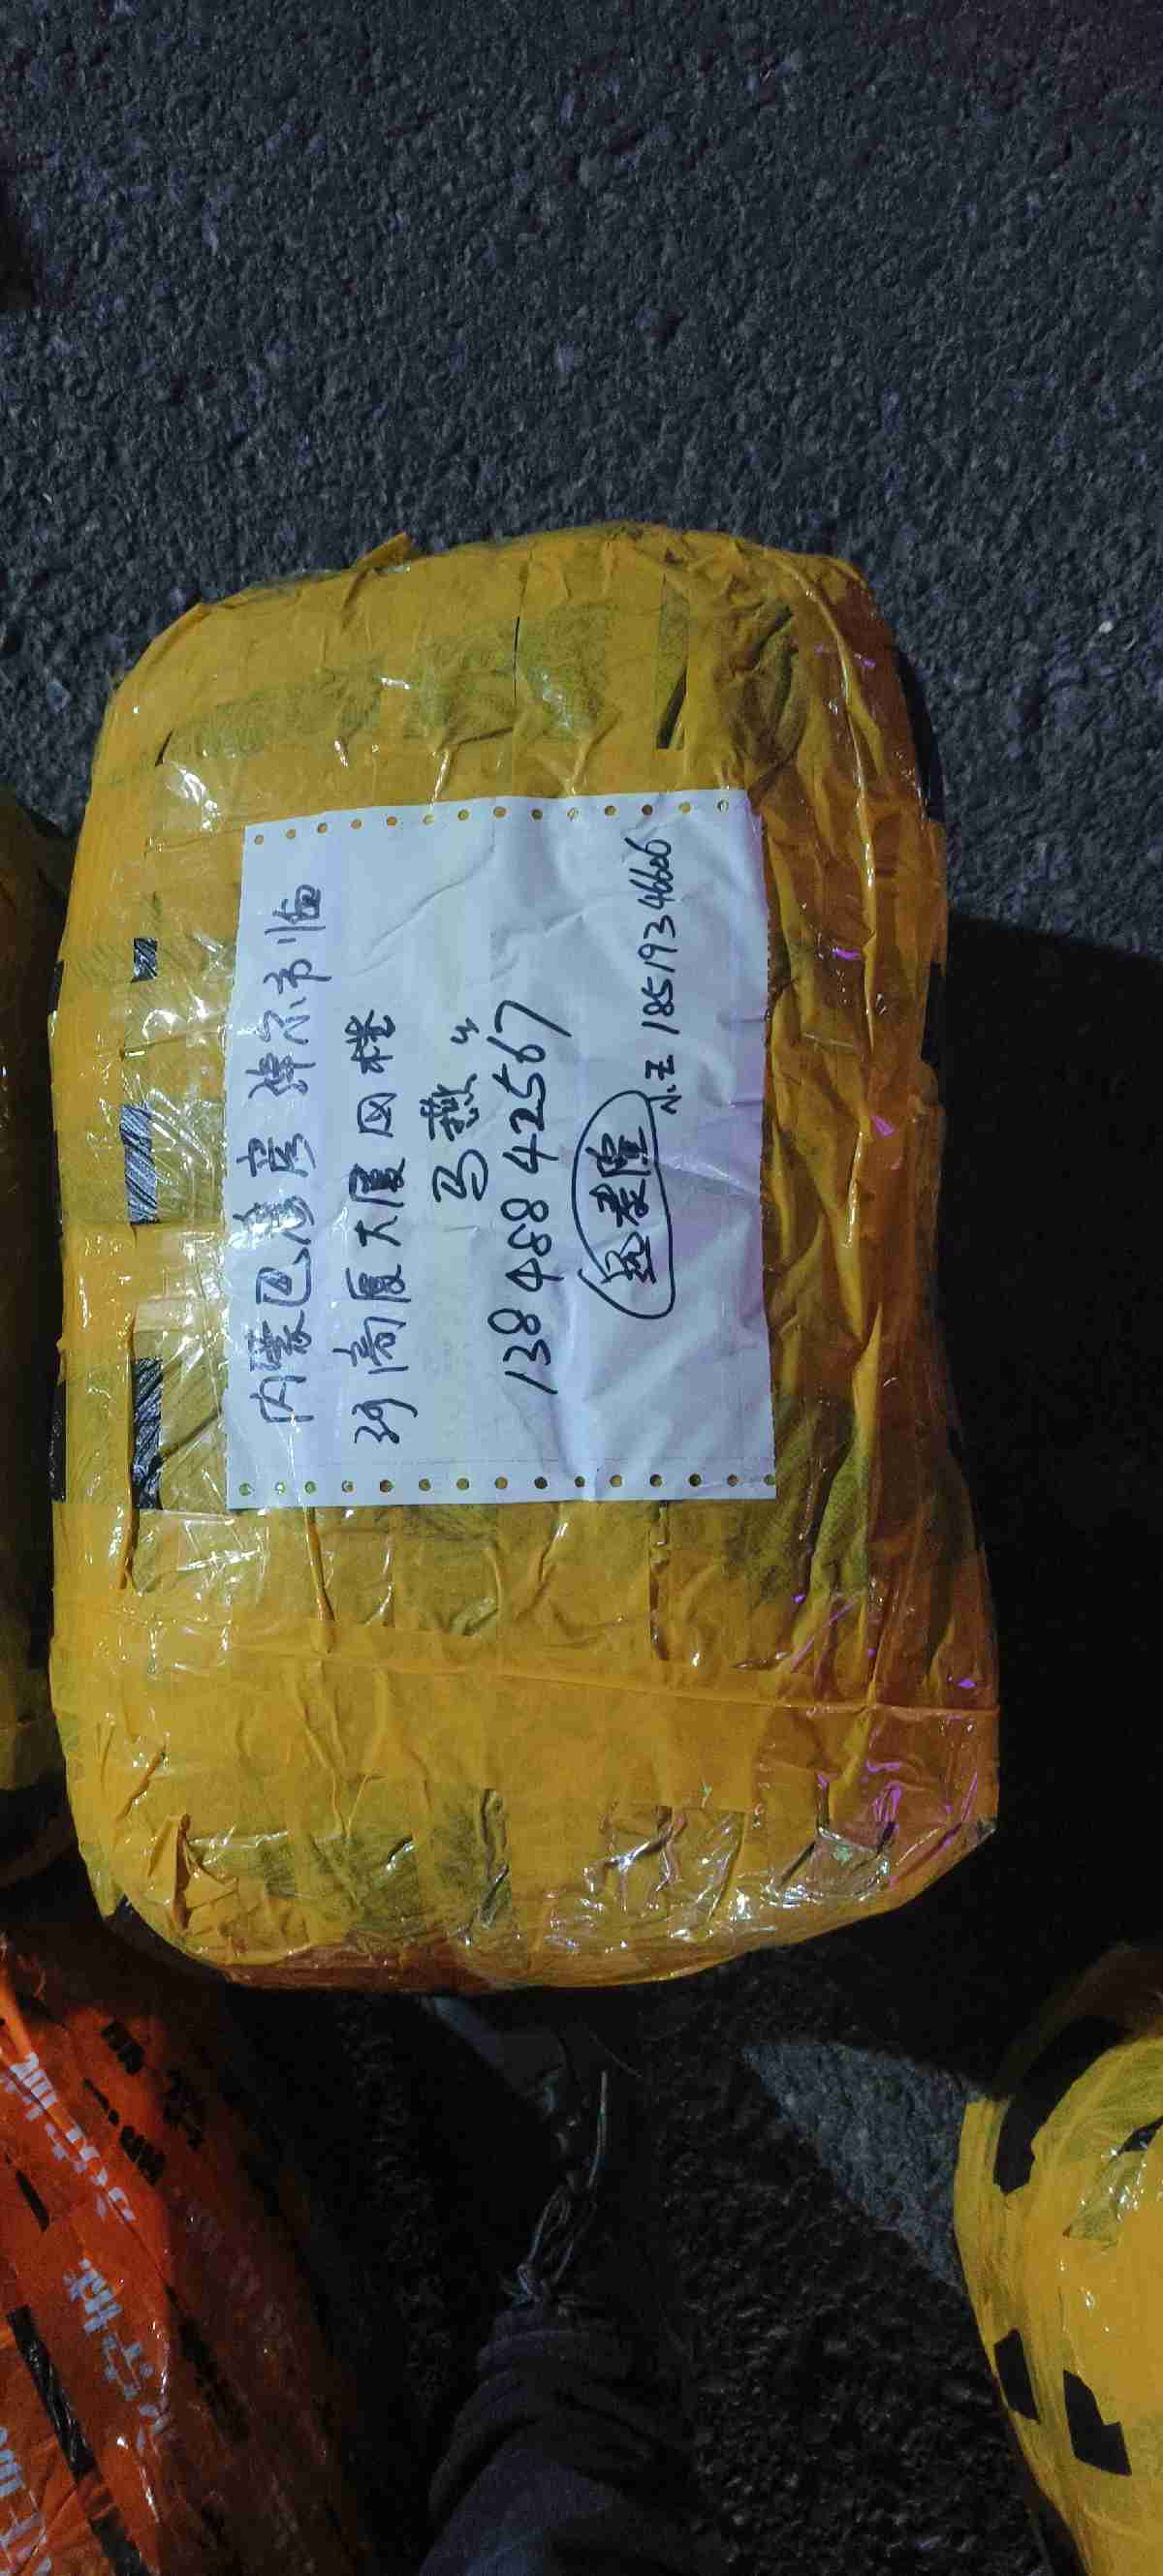 内蒙巴彦淖尔市临
河商厦大厦四楼
马燕
13848842567
鑫泰隆
小王 18519346606